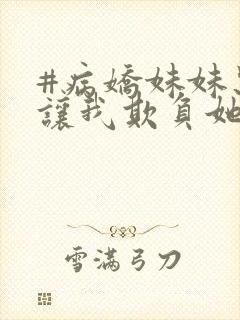 #病嬌妹妹
讓我欺負她
雪滿弓刀